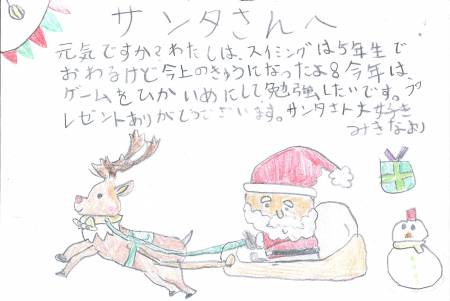 サンタさんへ
元気ですか?わたしは、スイミングは5年生で
おわるけど今上のきゅうになったよ!今年は、
ゲームをひかいめにして勉強したいです。プ
レゼントありがとうございます。サンタさん大好き
みきなより